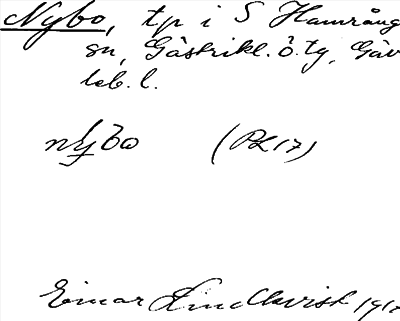 Nybo, tp i S Hamrång
sn, Gästrikl. ö. tg, Gäv
leb. l.
(PK 17)
Einar Lindkvist 1917